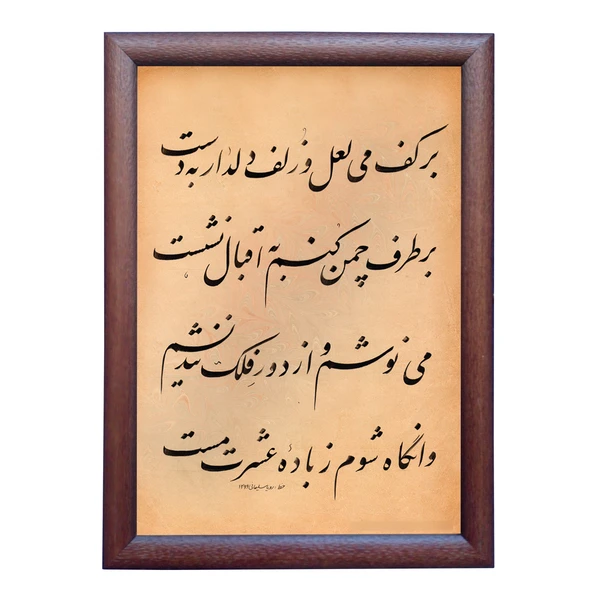 بر کف می لعل و زلف دلدار به دست
بر طرف چمن کنم به اقبال نشست
می نوشم و از دور فلک نندیشم
وانگاه شوم ز بادهٔ عشرت مست
خط